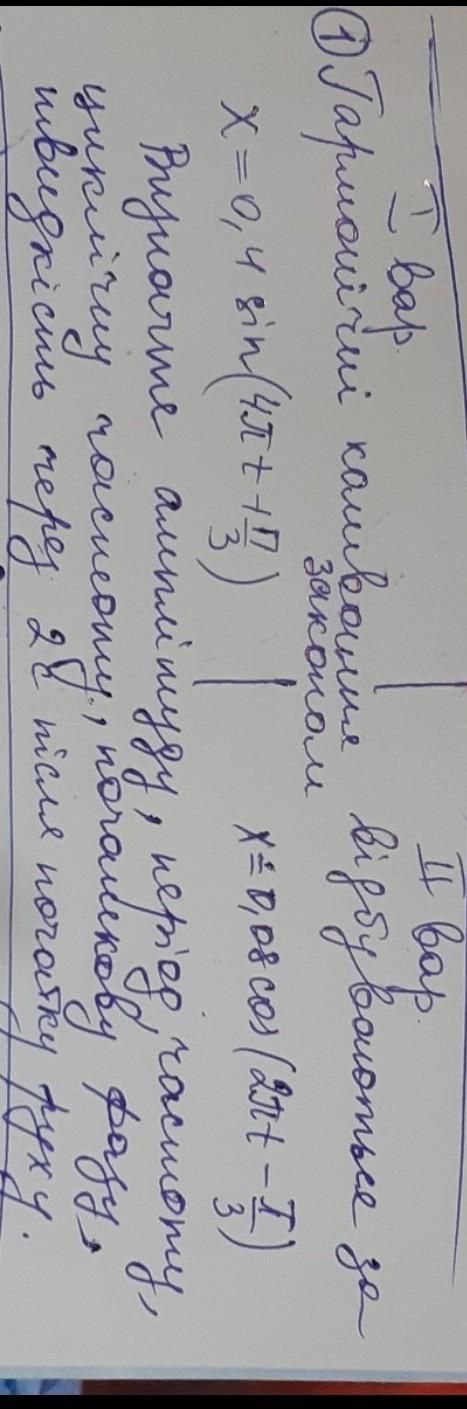 I вар. II вар.
① Гармонічні коливання відбуваються за
законом
x = 0,4 sin(4πt + π/3) | x = 0,08 cos(2πt - π/3)
Визначте амплітуду, період, частоту,
циклічну частоту, початкову фазу,
швидкість через 2с після початку руху.